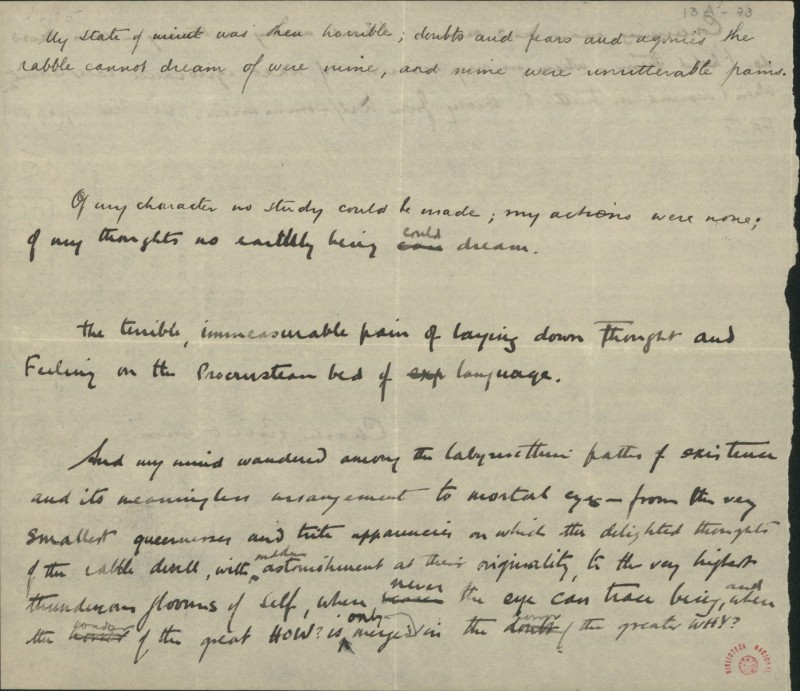 13A-73
My state of mind was then horrible; doubts and fears and agonies the
rabble cannot dream of were mine, and mine were unutterable pains.
Of my character no study could be made; my actions were none;
of my thoughts no earthly being could dream.
The terrible, immeasurable pain of laying down Thought and
Feeling on the Procrustean bed of exp language.
And my mind wandered among the labyrinthine paths of existence
and its meaningless arrangement to mortal eyes — from the very
smallest queernesses and trite apparencies on which the delighted thoughts
of the rabble dwell, with sudden astonishment at their originality, to the very highest
thunderous glooms of Self, where never the eye can trace being, and when
the horror of the great HOW? is only merged in the doubt horror of the greater WHY?
BIBLIOTECA NACIONAL